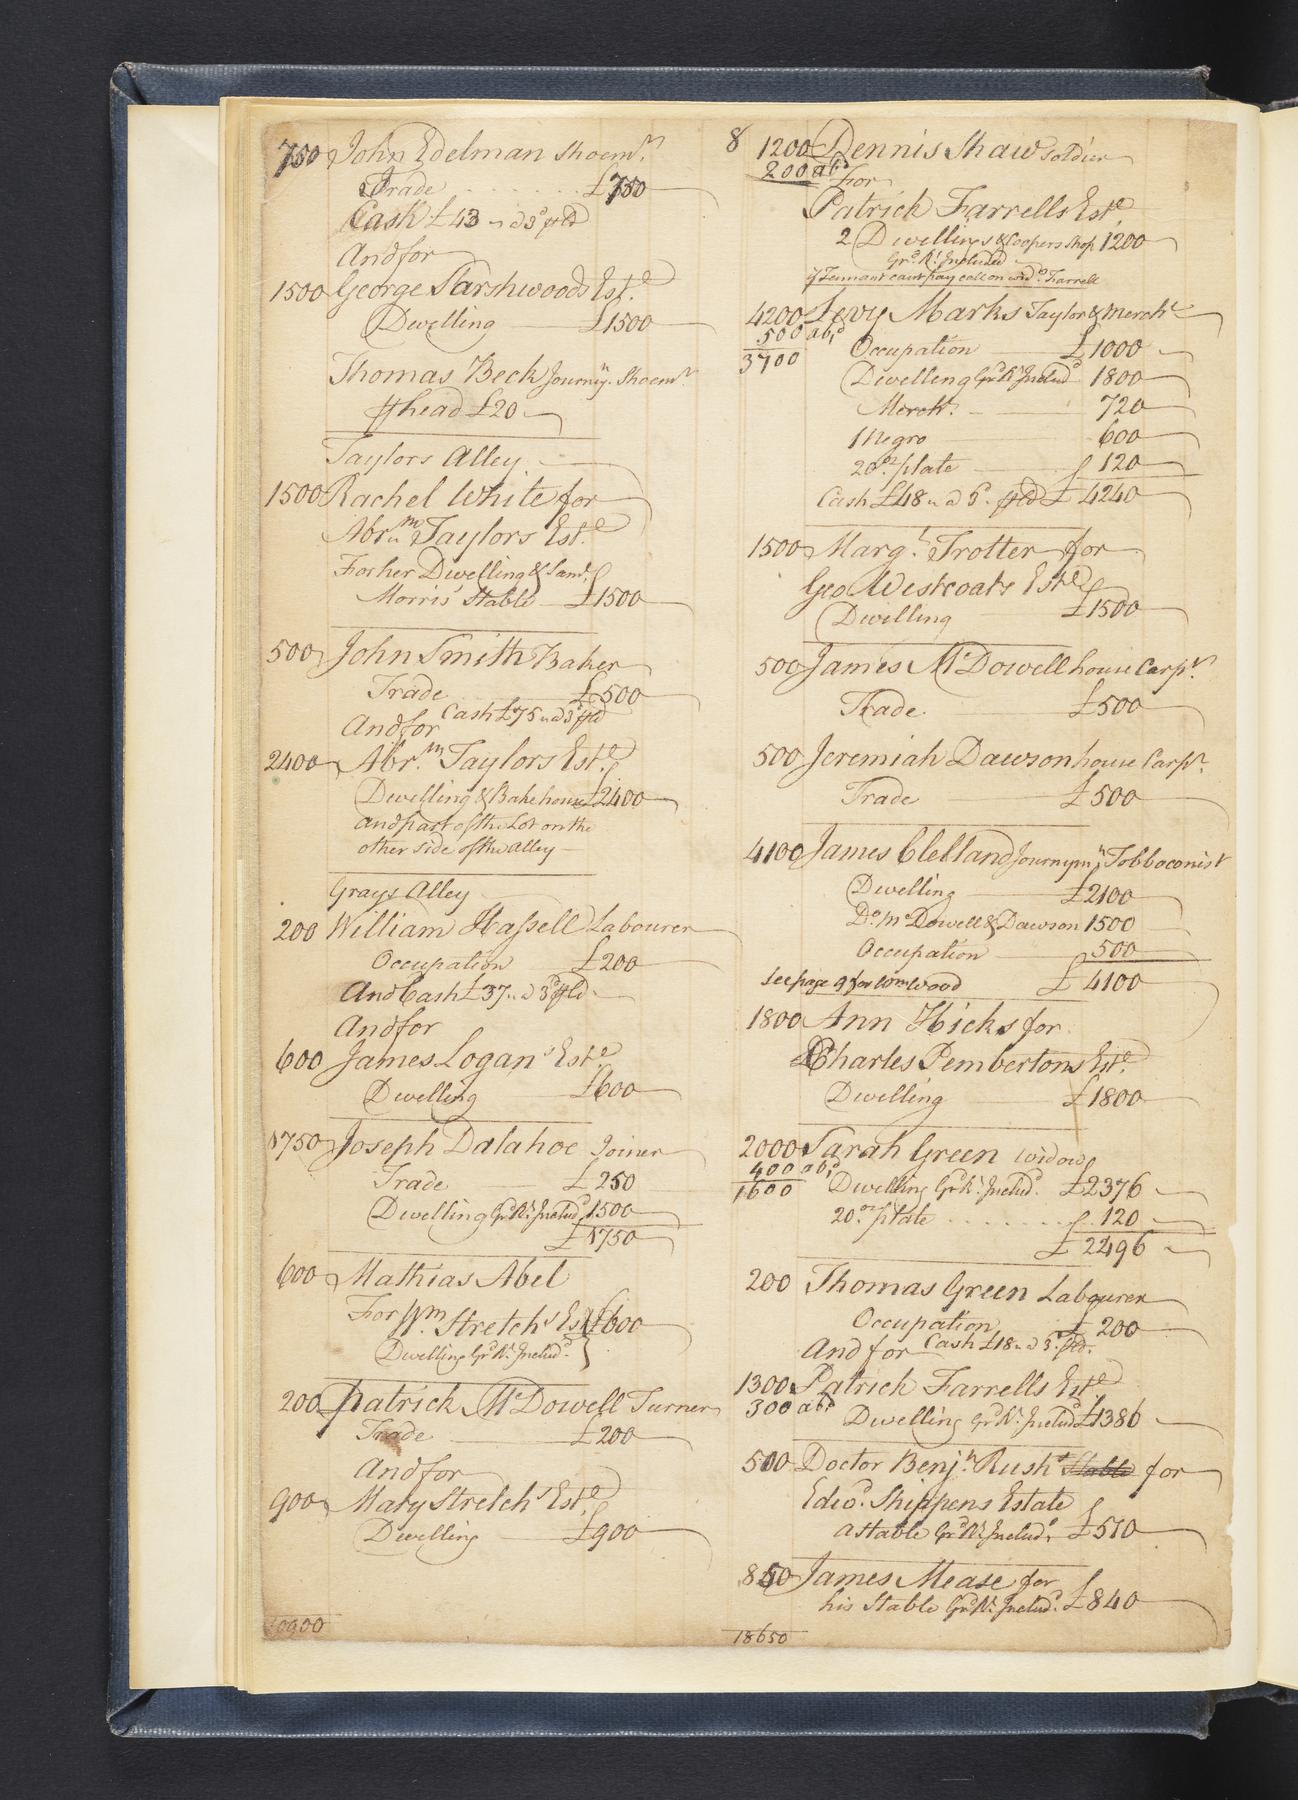 750 John Edelman Shoemr.
Trade £750
Cash £43 ” @ 3d. ⅌ Ld
And for
1500 George Sarshwoods Este.
Dwelling £1500
Thomas Beck Journyn. Shoemr.
⅌ head £20
Taylors Alley
1500 Rachel White for
Abrm. Taylors Este.
For her Dwelling & Saml.
Morris' Stable £1500
500 John Smith Baker
Trade £500
Cash £75 ” @ 3d ⅌ Ld
And for
2400 Abrm. Taylors Este.
Dwelling & Bakehouse £2400
and part of the Lot on the
other side of the alley
Grays Alley
200 William Hassell Labourer
Occupation £200
And Cash £37 ” @ 3d ⅌ Ld
And for
600 James Logan's Este.
Dwelling £600
1750 Joseph Dalahoe Joiner
Trade £250
Dwelling Grd. Rt. Includd. 1500
£1750
600 Mathias Abel
For Wm. Stretch's Este £600
Dwelling Grd. Rt. Includd.
200 Patrick McDowell Turner
Trade £200
And for
900 Mary Stretch's Este.
Dwelling £900
10900
8
1200 Dennis Shaw Soldier
200 abd
For
Patrick Farrells Este.
2 Dwellings & Coopers Shop 1200
Grd. Rt. Included
if Tennant cant pay call on Farrell
4200 Levy Marks Taylor & Mercht
500 abd
3700
Occupation £1000
Dwelling Grd Rt Includd 1800
Mercht. 720
1 Negro 600
20 oz. plate £ 120
Cash £48 ” @ 5d. ⅌ Ld £ 4240
1500 Margt. Trotter for
Geo. Westcoats Este
Dwelling £1500
500 James McDowell house Carpr.
Trade £500
500 Jeremiah Dawson house Carpr.
Trade £500
4100 James Clelland Journymn. Tobboconist
Dwelling £2100
Do. McDowell & Dawson 1500
Occupation 500
See page 9 for Wm Wood £ 4100
1800 Ann Hicks for
Charles Pembertons Este.
Dwelling £1800
2000 Sarah Green widow
400 abd
1600
Dwelling Grd. Rt. Includd. £2376
20 oz. plate £ 120
£ 2496
200 Thomas Green Labourer
Occupation £ 200
And for Cash £18 ” @ 3d. ⅌ Ld.
1300 Patrick Farrells Este
300 abd
Dwelling Grd. Rt. Includd £1386
500 Doctor Benjn. Rush's Stable for
Edwd. Shippens Estate
a stable Grd Rt. Includd. £510
850 James Mease for
his Stable Grd. Rt. Includd. £840
18650